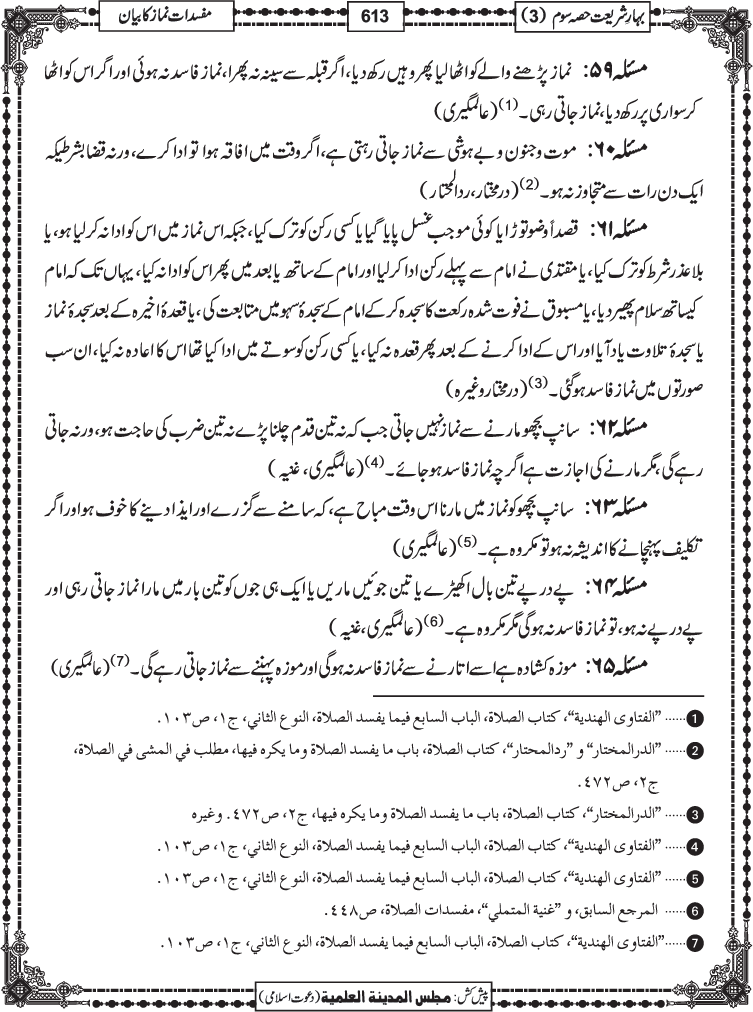 بہارِ شریعت حصہ سوم (3)
613
مفسدات نماز کا بیان
مسئلہ ۵۹: نماز پڑھنے والے کو اٹھا لیا پھر وہیں رکھ دیا، اگر قبلہ سے سینہ نہ پھرا، نماز فاسد نہ ہوئی اور اگر اس کو اٹھا
کر سواری پر رکھ دیا، نماز جاتی رہی۔ (1) (عالمگیری)
مسئلہ ۶۰: موت و جنون و بے ہوشی سے نماز جاتی رہتی ہے، اگر وقت میں افاقہ ہوا تو ادا کرے، ورنہ قضا بشرطیکہ
ایک دن رات سے متجاوز نہ ہو۔ (2) (درمختار، ردالمحتار)
مسئلہ ۶۱: قصداً وضو توڑا یا کوئی موجب غسل پایا گیا یا کسی رکن کو ترک کیا، جبکہ اس نماز میں اس کو ادا نہ کر لیا ہو، یا
بلا عذر شرط کو ترک کیا، یا مقتدی نے امام سے پہلے رکن ادا کر لیا اور امام کے ساتھ یا بعد میں پھر اس کو ادا نہ کیا، یہاں تک کہ امام
کیساتھ سلام پھیر دیا، یا مسبوق نے فوت شدہ رکعت کا سجدہ کر کے امام کے سجدۂ سہو میں متابعت کی، یا قعدۂ اخیرہ کے بعد سجدۂ نماز
یا سجدۂ تلاوت یاد آیا اور اس کے ادا کرنے کے بعد پھر قعدہ نہ کیا، یا کسی رکن کو سوتے میں ادا کیا تھا اس کا اعادہ نہ کیا، ان سب
صورتوں میں نماز فاسد ہو گئی۔ (3) (درمختار وغیرہ)
مسئلہ ۶۲: سانپ بچھو مارنے سے نماز نہیں جاتی جب کہ نہ تین قدم چلنا پڑے نہ تین ضرب کی حاجت ہو، ورنہ جاتی
رہے گی، مگر مارنے کی اجازت ہے اگرچہ نماز فاسد ہو جائے۔ (4) (عالمگیری، غنیہ)
مسئلہ ۶۳: سانپ بچھو کو نماز میں مارنا اس وقت مباح ہے، کہ سامنے سے گزرے اور ایذا دینے کا خوف ہو اور اگر
تکلیف پہنچانے کا اندیشہ نہ ہو تو مکروہ ہے۔ (5) (عالمگیری)
مسئلہ ۶۴: پے در پے تین بال اکھیڑے یا تین جوئیں ماریں یا ایک ہی جوں کو تین بار میں مارا نماز جاتی رہی اور
پے در پے نہ ہو، تو نماز فاسد نہ ہوگی مگر مکروہ ہے۔ (6) (عالمگیری، غنیہ)
مسئلہ ۶۵: موزہ کشادہ ہے اسے اتارنے سے نماز فاسد نہ ہوگی اور موزہ پہننے سے نماز جاتی رہے گی۔ (7) (عالمگیری)
1 ...... ”الفتاوی الھندیۃ“، کتاب الصلاۃ، الباب السابع فیما یفسد الصلاۃ، النوع الثاني، ج۱، ص۱۰۳.
2 ...... ”الدرالمختار“ و ”ردالمحتار“، کتاب الصلاۃ، باب ما یفسد الصلاۃ وما یکرہ فیھا، مطلب في المشی في الصلاۃ،
ج۲، ص۴۷۲.
3 ...... ”الدرالمختار“، کتاب الصلاۃ، باب ما یفسد الصلاۃ وما یکرہ فیھا، ج۲، ص۴۷۲. وغیرہ
4 ...... ”الفتاوی الھندیۃ“، کتاب الصلاۃ، الباب السابع فیما یفسد الصلاۃ، النوع الثاني، ج۱، ص۱۰۳.
5 ...... ”الفتاوی الھندیۃ“، کتاب الصلاۃ، الباب السابع فیما یفسد الصلاۃ، النوع الثاني، ج۱، ص۱۰۳.
6 ...... المرجع السابق، و ”غنیۃ المتملي“، مفسدات الصلاۃ، ص۴۴۸.
7 ......”الفتاوی الھندیۃ“، کتاب الصلاۃ، الباب السابع فیما یفسد الصلاۃ، النوع الثاني، ج۱، ص۱۰۳.
پیش کش: مجلس المدینۃ العلمیۃ (دعوت اسلامی)